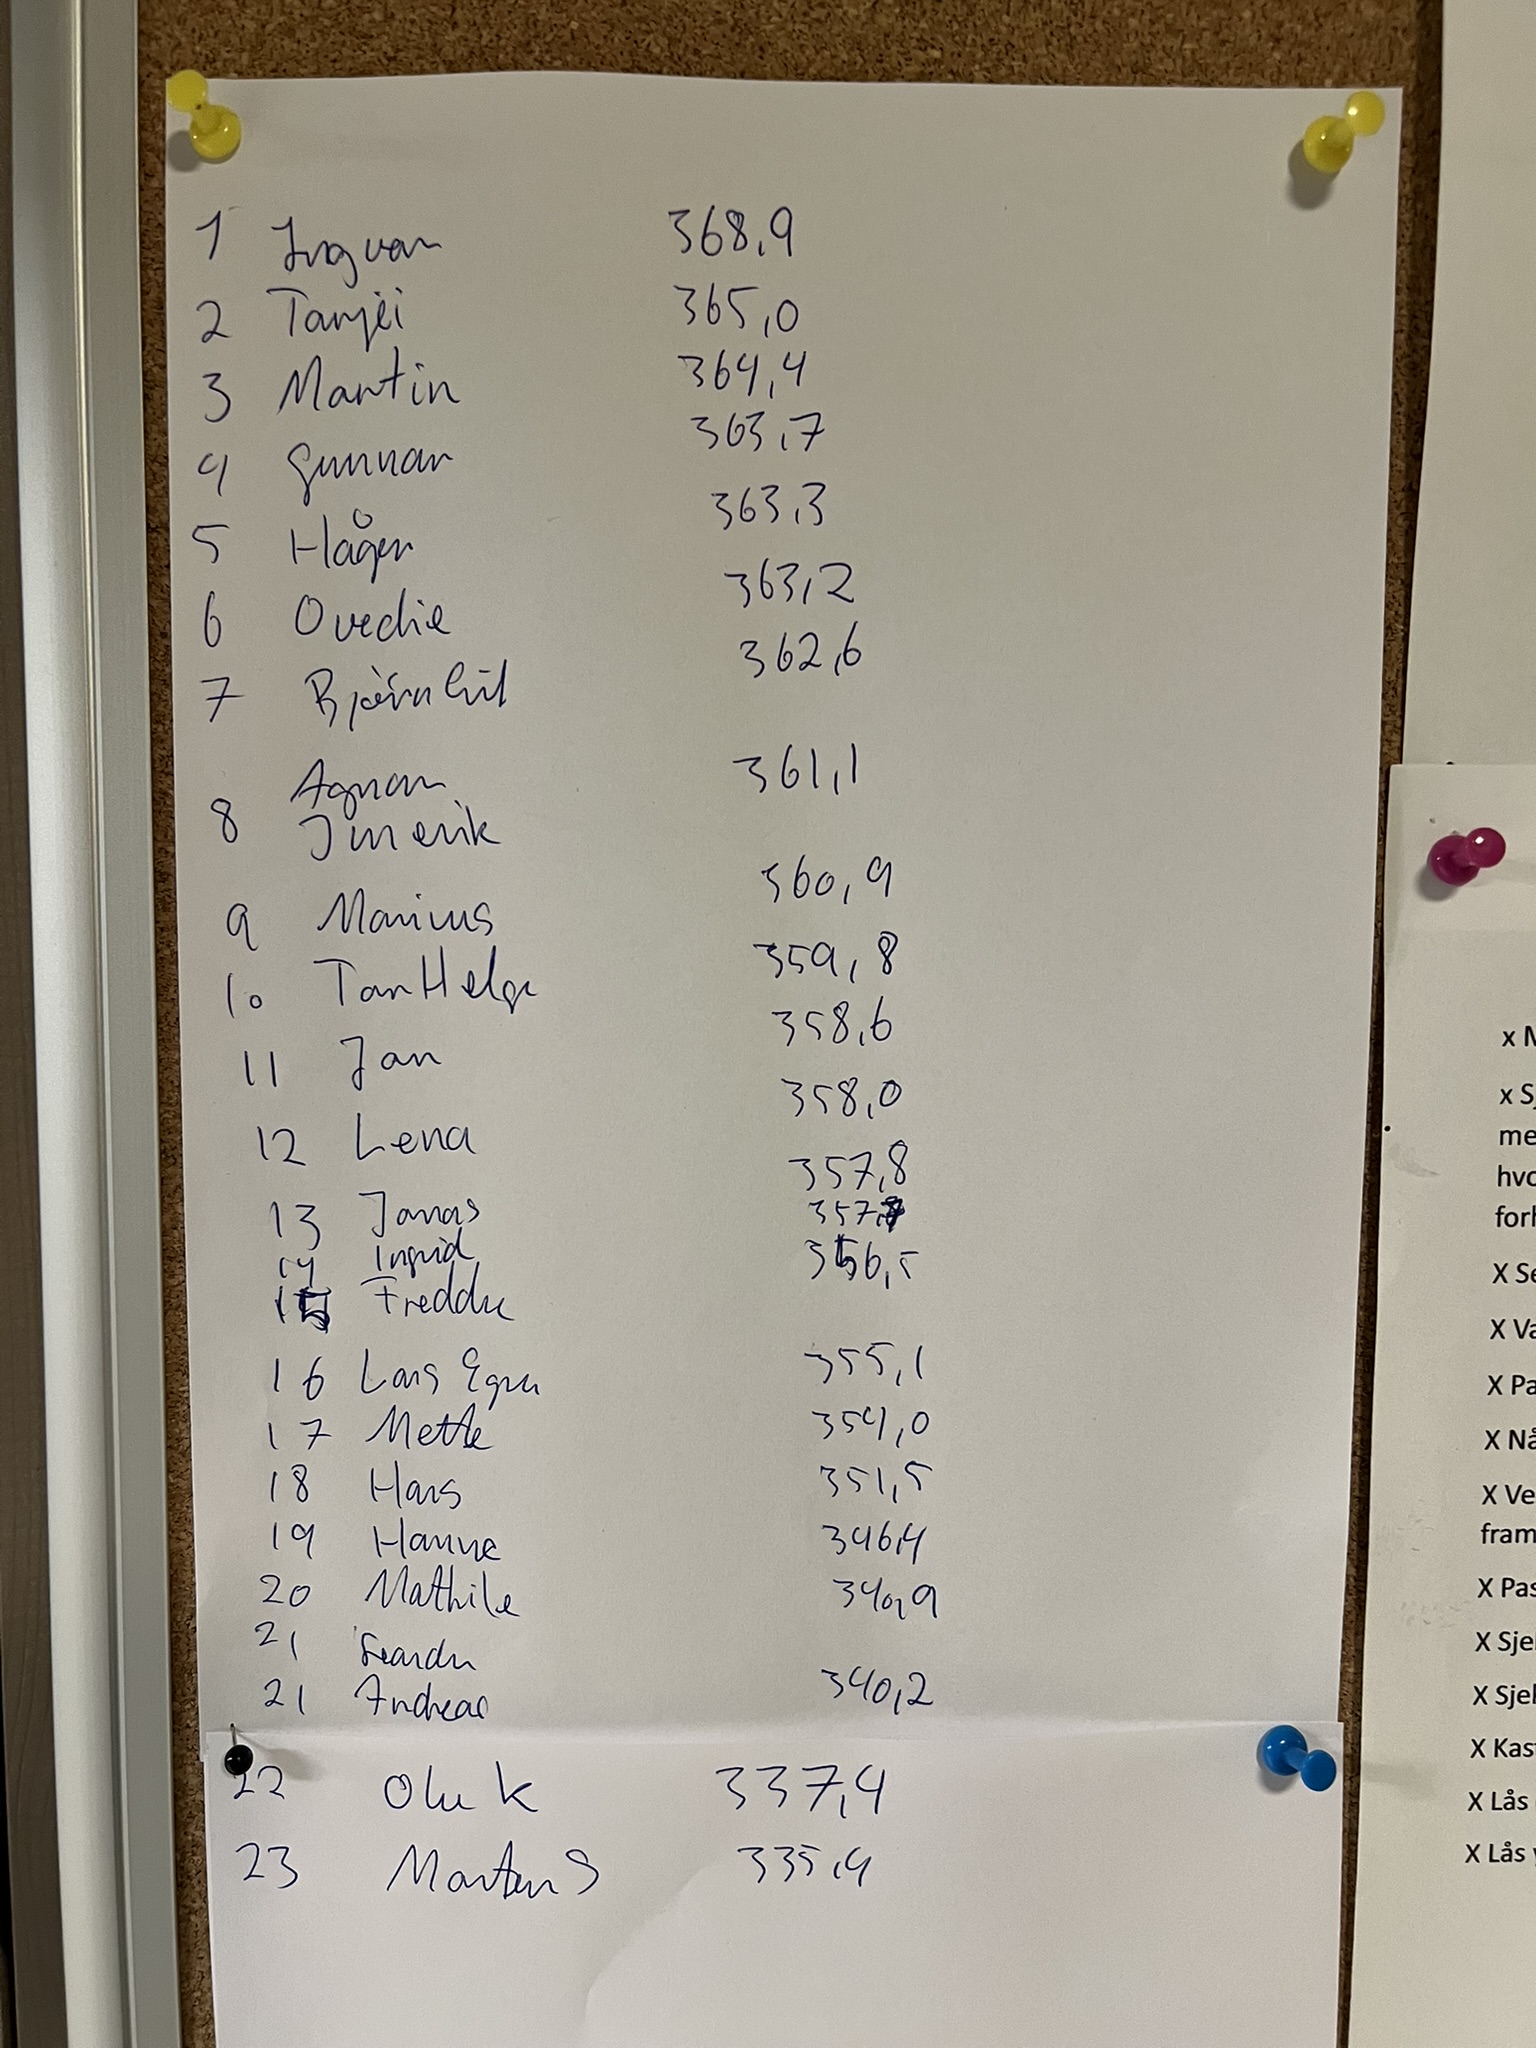 1 Ingvar 368,9
2 Tarjei 365,0
3 Martin 364,4
4 Gunnar 363,7
5 Håger 363,3
6 Ovedie 363,2
7 Bjørnhil 362,6
Agnar 361,1
8 Jnr erik
9 Marius 360,9
10 Tor Helge 359,8
11 Jan 358,6
12 Lena 358,0
13 Jonas 357,8
14 Ingrid 357,
15 Freddie 356,5
16 Lars Egra 355,1
17 Mette 354,0
18 Hans 351,5
19 Hanne 346,4
20 Mathile 340,9
21
21 Andreas 340,2
22 Ole K 337,4
23 Morten S 335,4
x
x
me
hvo
for
X Se
X Va
X Pa
X Nå
X Ve
fram
X Pas
X Sje
X Sje
X Kas
X Lås
X Lås